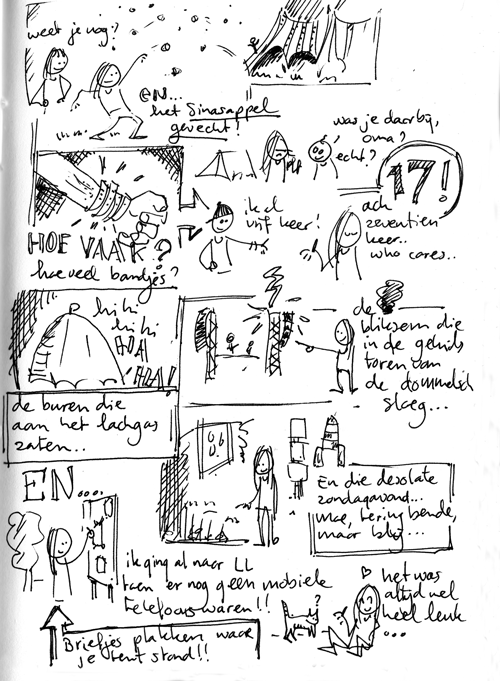 weet je nog?
EN...
het Sinasappel
gevecht!
was je daarbij,
oma?
echt?
17!
HOE VAAK?
hoeveel bandjes?
ik al
vijf keer!
ach
zeventien
keer..
who cares..
hihi
hihi
HA!
HA!
de
bliksem die
in de geluids
toren van
de dommelsch
sloeg...
de buren die
aan het lachgas
zaten...
EN....
En die desolate
zondagavond...
moe, tering bende,
maar
ik ging al naar LL
toen er nog geen mobiele
telefoons waren!!
Briefjes plakken waar
je tent stond!!
?
het was
altijd wel
heel leuk
...